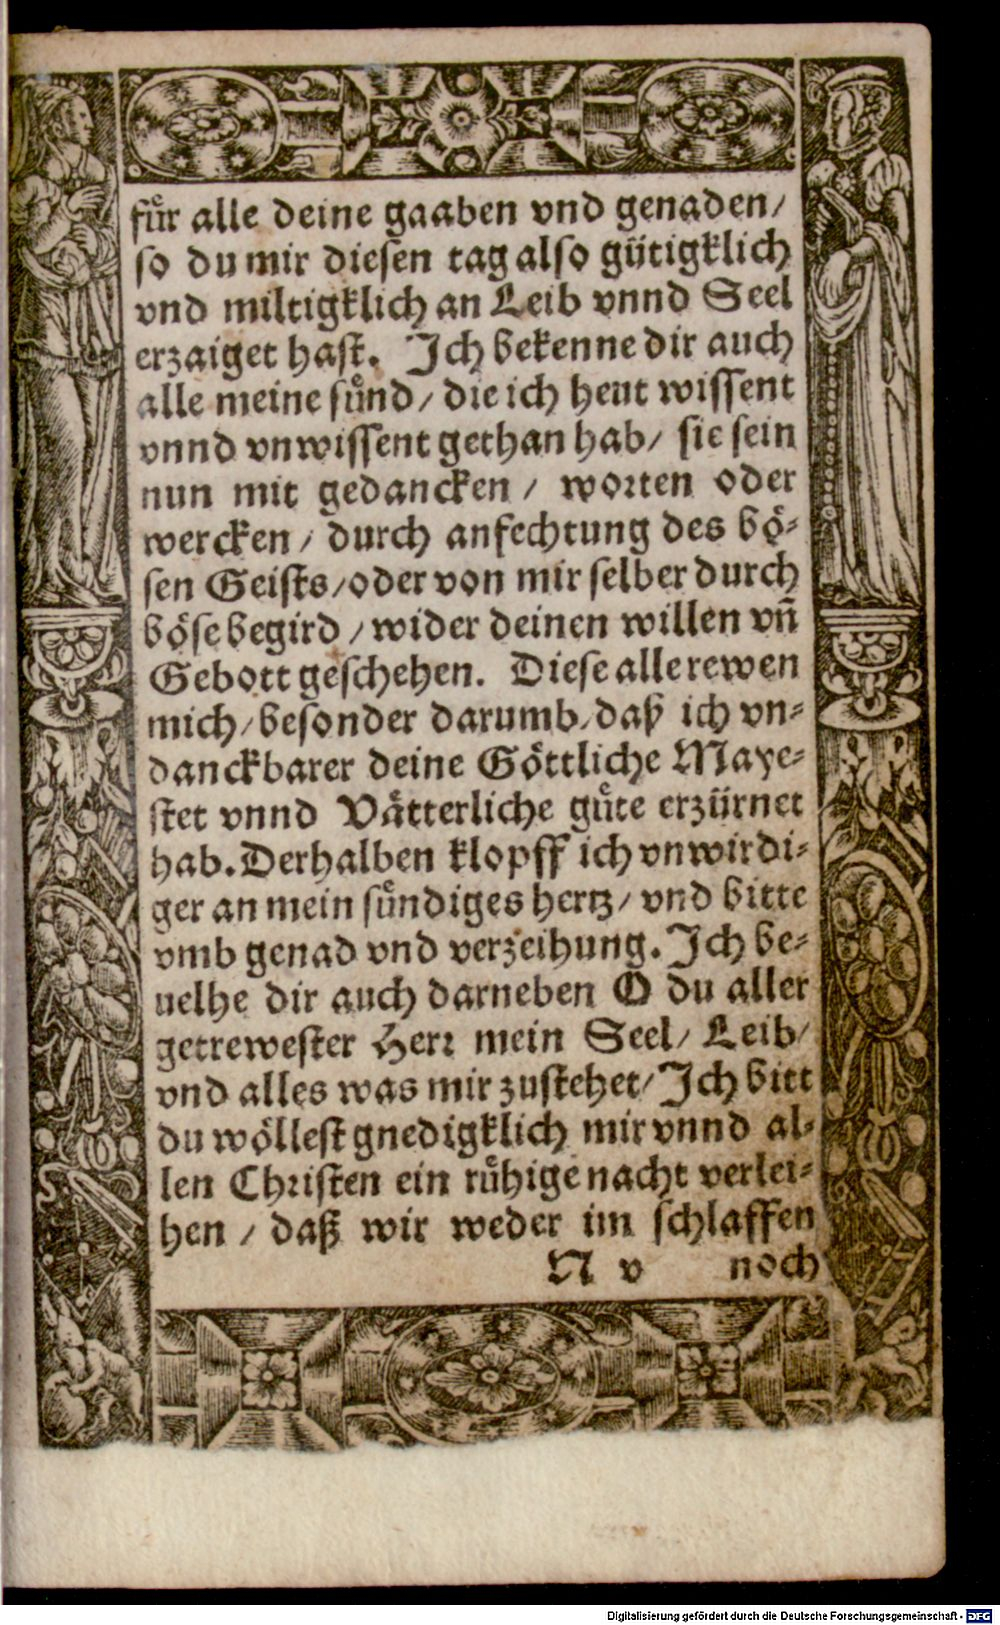 fuͤr alle deine gaaben vnd genaden/
so du mir diesen tag also gütigklich
vnd miltigklich an Leib vnnd Seel
erzaiget hast. Ich bekenne dir auch
alle meine suͤnd/ die ich heut wissent
vnnd vnwissent gethan hab/ sie sein
nun mit gedancken/ worten oder
wercken/ durch anfechtung des boͤ-
sen Geists/ oder von mir selber durch
boͤse begird/ wider deinen willen vñ
Gebott geschehen. Diese alle rewen
mich/ besonder darumb/ daß ich vn-
danckbarer deine Goͤttliche Maye-
stet vnnd Vaͤtterliche guͤte erzürnet
hab. Derhalben klopff ich vnwirdi-
ger an mein suͤndiges hertz/ vnd bitte
vmb genad vnd verzeihung. Ich be-
uelhe dir auch darneben O du aller
getrewester Herr mein Seel/ Leib/
vnd alles was mir zustehet/ Ich bitt
du woͤllest gnedigklich mir vnnd al-
len Christen ein ruͤhige nacht verlei-
hen/ daß wir weder im schlaffen
N v noch
Digitalisierung gefördert durch die Deutsche Forschungsgemeinschaft - DFG